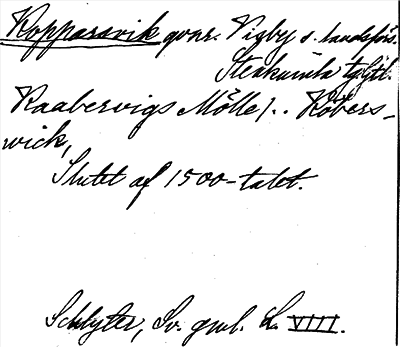 Kopparsvik qvar. Visby s. landsförs.
Stenkumla tgltl.
Kaabervigs Mölle/.. Kobers-
wick,
Slutet af 1500-talet.
Schlyter, Sv. gml. L. VIII.